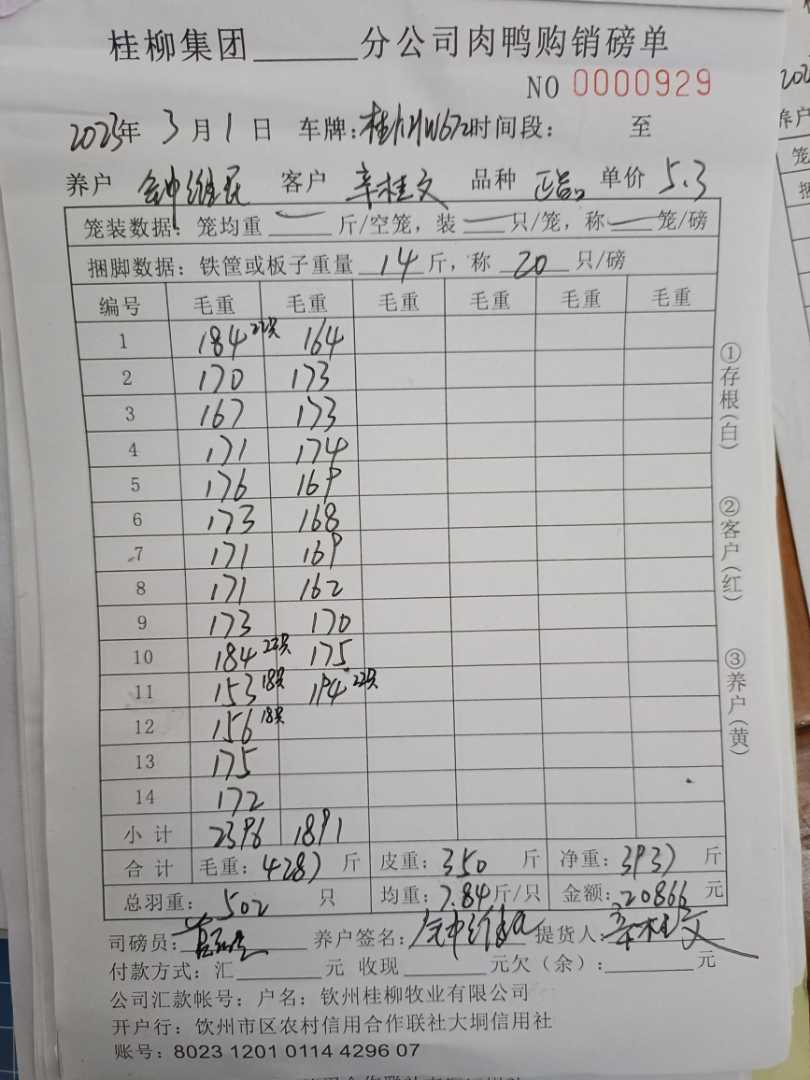 桂柳集团______分公司肉鸭购销磅单
NO 0000929
2023年 3月1日 车牌: 时间段: 至
养户 钟维民 客户 辛桂文 品种 正品 单价 5.3
笼装数据: 笼均重 — 斤/空笼, 装 — 只/笼, 称 — 笼/磅
捆脚数据: 铁筐或板子重量 14 斤, 称 20 只/磅
编号 毛重 毛重 毛重 毛重 毛重 毛重
1 184 22只 164
2 170 173
3 167 173
4 171 174
5 176 169
6 173 168
7 171 169
8 171 162
9 173 170
10 184 22只 175
11 153 18只 194 22只
12 156 18只
13 175
14 172
小计 2396 1891
合计 毛重: 4287 斤 皮重: 350 斤 净重: 3937 斤
总羽重: 502 只 均重: 7.84斤/只 金额: 20866 元
司磅员: 养户签名: 钟维民 提货人: 辛桂文
付款方式: 汇______元 收现______元欠(余): ______元
公司汇款帐号: 户名: 钦州桂柳牧业有限公司
开户行: 饮州市区农村信用合作联社大垌信用社
账号: 8023 1201 0114 4296 07
①存根(白)
②客户(红)
③养户(黄)
202
养户
笼
捆